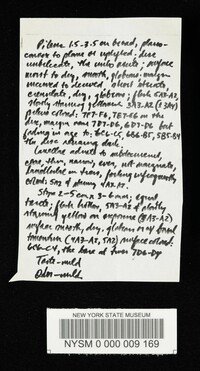 Pileus 1.5-3.5 cm broad, plano-
convex to plane or uplifted, disc
umbilicate, the umbo acute; surface
moist to dry, smooth, glabrous; margin
incurved to decurved,
crenulate, dry, glabrous; flesh 5A3-A2,
slowly staining yellowish 3A3-A2
7F7-F6, 7E7-E6 on the
disc, margin near 7E7-D6, 6D7-D6 but
fading in age to: 6C6-C5, 6B6-B5, 5B5-B4
the disc remaining dark.
Lamellae adnate to subdecurrent,
narrow, even, not marginate,
forking infrequently
5A2 4A2
Stipe 2-5 cm x 3-6 mm; equal
terete; flesh hollow, 5A3-A2
staining yellow on exposure (3A3-A2)
surface smooth, dry, glabrous base
tomentum (4A3-A2, 5A2) surface
6C6-C4, the base at times 7D6-D7
Taste - mild
Odor - mild
NEW YORK STATE MUSEUM
NYSM 0 000 009 169